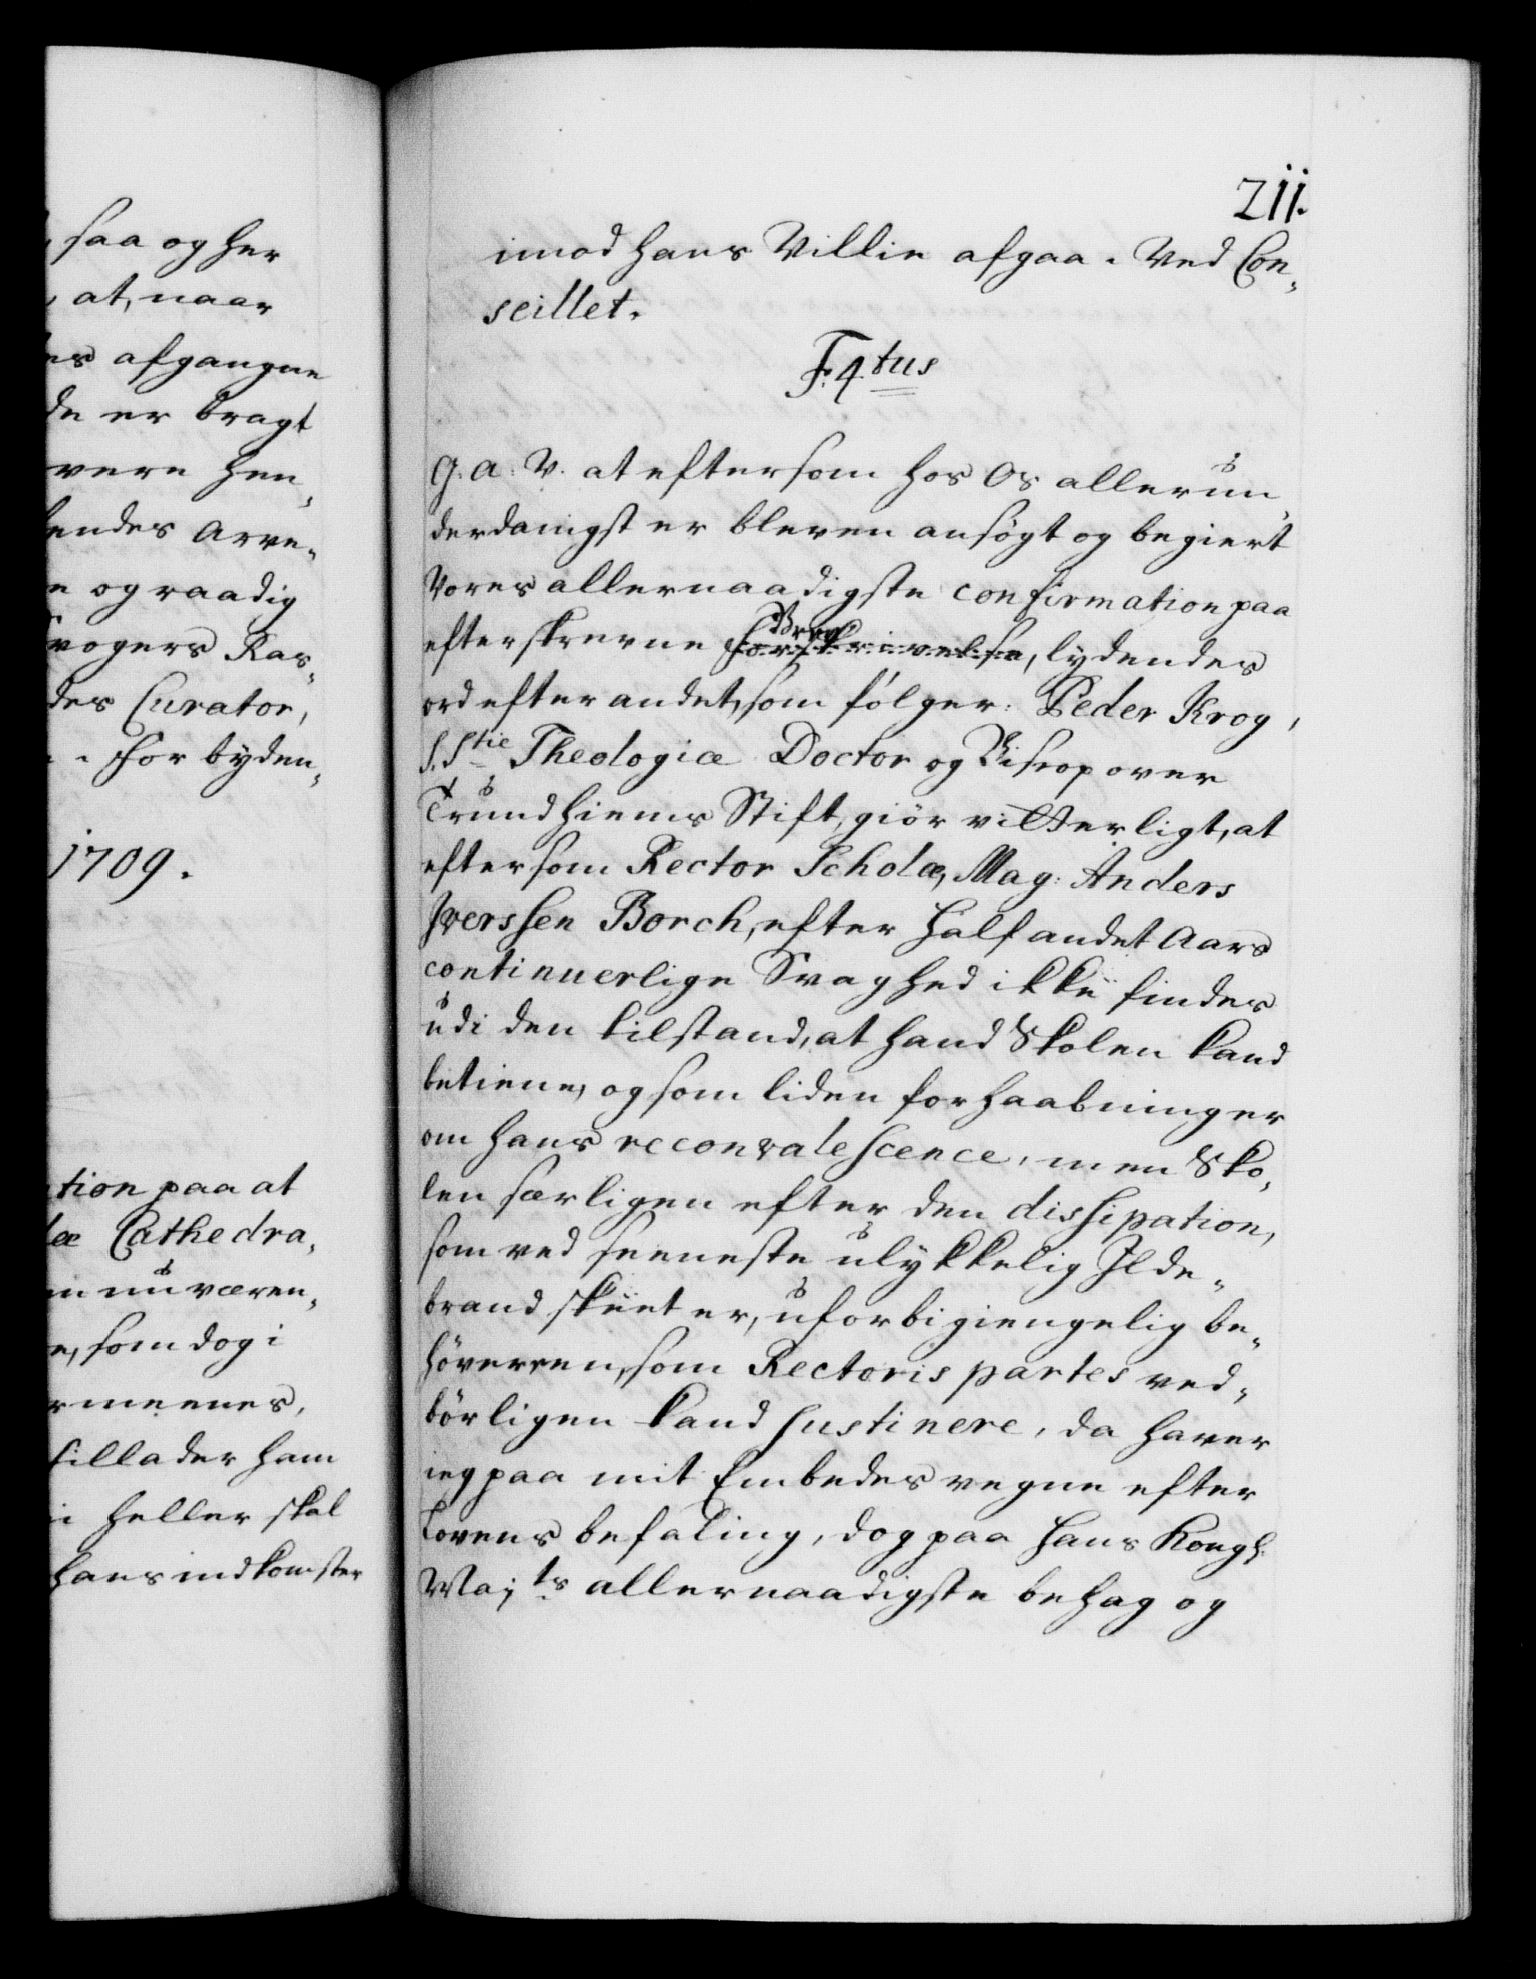 saa og her
at, naar
es afgangne
de er bragt
vere hen¬
hendes Arve¬
e og raadig
vogers Ras¬
des Curator,
. For byden¬
1709.
tion paa at
læ Cathedra¬
nu væren¬
e, som dog i
meenes,
tillader ham
i heller skal
hans indkomster
211.
imod hans Villie afgaa. Ved Con¬
seillet.
F. 4tus
G. A. V. at eftersom hos Os allerun¬
derdanigst er bleven ansøgt og begiert
Vores allernaadigste confirmation paa
efterskrevne Brev forskrivelse, lydendes
ord efter andet, som følger: Peder Krog,
S. Stie Theologiæ Doctor og Biscop over
Trundhiems Stift, giør vitterligt, at
eftersom Rector Scholæ, Mag: Anders
Iverssen Borch, efter Halfandet Aars
continuerlige Svaghed ikke findes
udi den tilstand, at hand Skolen kand
betiene, og som liden forhaabning er
om hans reconvalescence, men Sko¬
len særligen efter den dissipation,
som ved seeneste ulykkelig Ilde¬
brand skeet er, uforbigiengelig be¬
høver een, som Rectoris partes ved¬
børligen kand sustinere, da haver
ieg paa mit Embedes vegne efter
Lovens befaling, dog paa Hans Kongl.
Maj:ts allernaadigste behag og